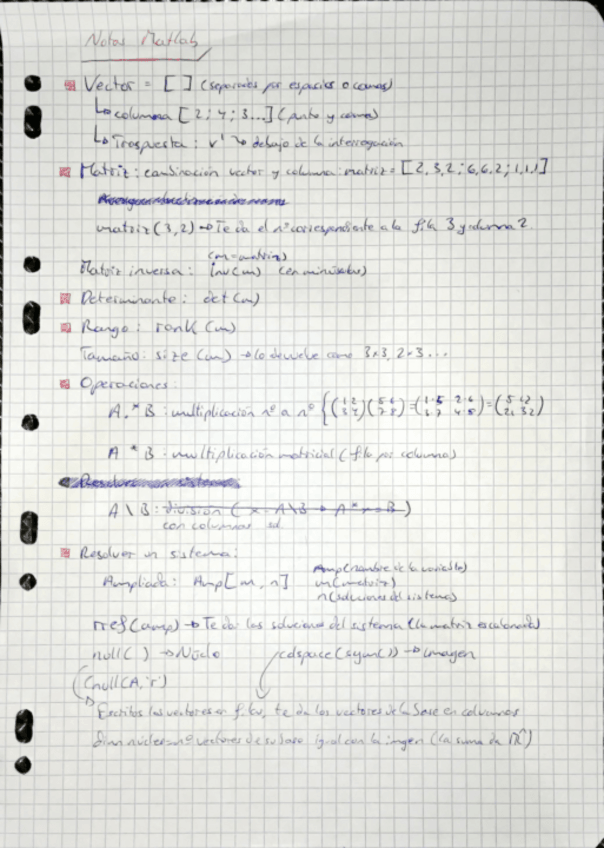 Notas Matlab
Vector = [ ] (separados por espacios o comas)
↳ columna [2; 4; 3...] (punto y coma)
↳ Traspuesta: v' ↳ debajo de la interrogación
Matriz: combinación vector y columna: matriz = [2,3,2; 6,6,2; 1,1,1]
matriz (3,2) → Te da el nº correspondiente a la fila 3 y columna 2.
(m = matriz)
Matriz inversa: inv(m) (en minúsculas)
Determinante: det(m)
Rango: rank(m)
Tamaño: size(m) → lo devuelve como 3x3, 2x3...
Operaciones:
A.*B: multiplicación nº a nº {(1 2 3 4)(5 6 7 8) = (1·5 2·6 3·7 4·8) = (5 12 21 32)
A * B: multiplicación matricial (fila por columna)
Resolver un sistema
A \ B: división ( x = A\B → A*x = B )
con columnas
Resolver un sistema:
Ampliada: Amp[m, n] Amp (nombre de la variable)
m (matriz)
n (soluciones del sistema)
rref(amp) → Te da las soluciones del sistema (la matriz escalonada)
null( ) → Núcleo colspace(sym( )) → Imagen
(null(A,'r')
↳ Escritos los vectores en filas, te da los vectores de la base en columnas
dim núcleo = nº vectores de su base igual con la imagen (la suma da ℝⁿ)